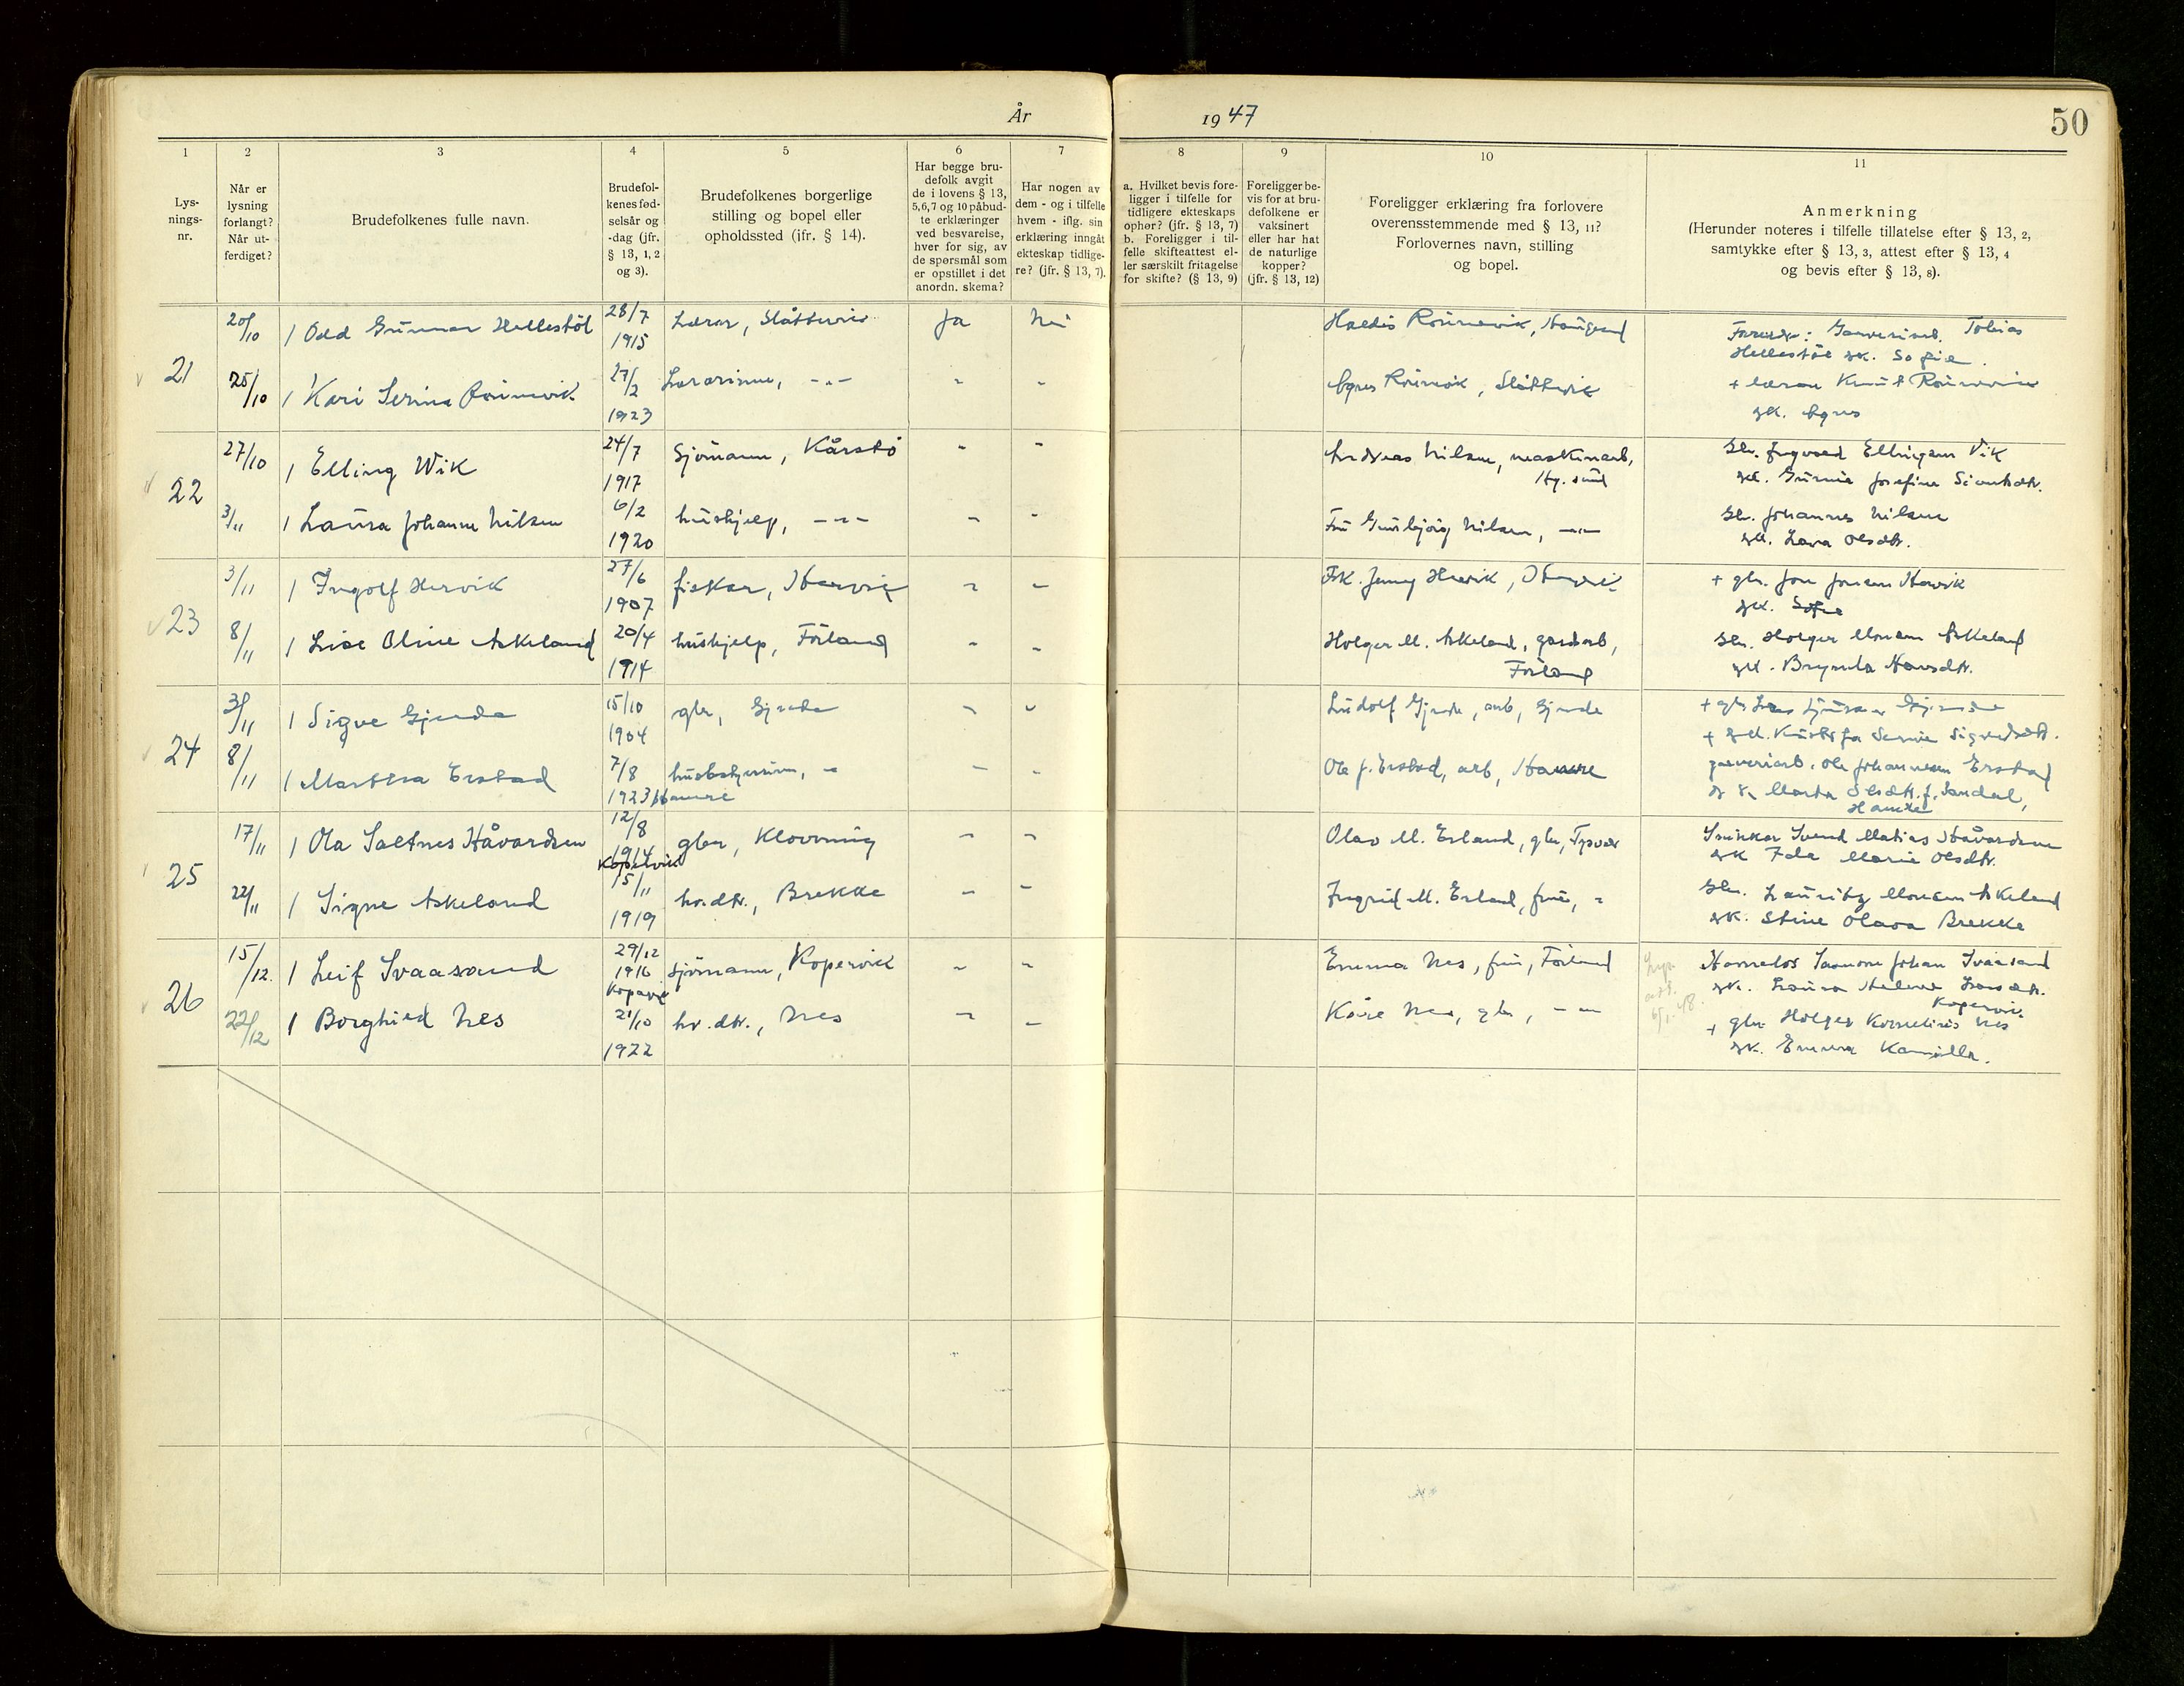 År 1947
50
1
2
3
4
5
6
7
8
9
10
11
Lys-
nings-
nr.
Når er
lysning
forlangt?
Når ut-
ferdiget?
Brudefolkenes fulle navn.
Brudefol-
kenes fød-
selsår og
-dag (jfr.
§ 13, 1, 2
og 3).
Brudefolkenes borgerlige
stilling og bopel eller
opholdssted (jfr. § 14).
Har begge bru-
defolk avgit
de i lovens § 13,
5,6,7 og 10 påbud-
te erklæringer
ved besvarelse,
hver for sig, av
de spørsmål som
er opstillet i det
anordn. skema?
Har nogen av
dem - og i tilfelle
hvem - iflg. sin
erklæring inngåt
ekteskap tidlige-
re? (jfr. § 13, 7).
a. Hvilket bevis fore-
ligger i tilfelle for
tidligere ekteskaps
ophør? (jfr. § 13, 7)
b. Foreligger i til-
felle skifteattest el-
ler særskilt fritagelse
for skifte? (§ 13, 9)
Foreligger be-
vis for at bru-
defolkene er
vaksinert
eller har hat
de naturlige
kopper?
(jfr. § 13, 12)
Foreligger erklæring fra forlovere
overensstemmende med § 13, 11?
Forlovernes navn, stilling
og bopel.
Anmerkning
(Herunder noteres i tilfelle tillatelse efter § 13, 2,
samtykke efter § 13, 3, attest efter § 13, 4
og bevis efter § 13, 8).
21
20/10 1 Odd Gunnar Hellestøl 28/7 1915 Lærer, Slåttevik Ja Nei
Tobias
Hellestøl gk. Sofie
25/10 1 Kari Serina 27/2 1923 Lærerinne, -"- " "
Agnes, Slåttevik
+ lærer Knut
gk. Agnes
22
27/10 1 Elling Wik 24/7 1917 Sjömann, Kårstö " " Andreas Nilsen, maskinarb,
Hg. sund
Ellingsen Vik
gk. Josefine
3/11 1 Laura Johanne Nilsen 6/2 1920 hushjelp, -"- " " Fru Gunbjörg Nilsen, -"-
Johannes Nilsen
gk. Lava Olsdtr.
23
3/11 1 Ingolf Hervik 27/6 1907 fisker, Hervik " " Frk. Jenny Hervik, Hervik
+ gbr. Jon Jonsen Hervik
gk. Sofie
8/11 1 Lise Oline Askeland 20/4 1914 hushjelp, Förland " " Holger M. Askeland, gardarb,
Förland
Holger Monsen Askeland
gk. Hansdtr.
24
3/11 1 Sigve Gjerde 15/10 1904 gbr, Gjerde " " Ludolf Gjerde, arb, Gjerde
8/11 1 Martha Erstad 7/8 1923 husbestyrerinne, "
Hamre
Ole J. Erstad, arb, Hamre
garveriarb. Ole Johannesen Erstad
gk. Marta Olsdtr. f. Sandal,
Hamre
25
17/11 1 Ola Saltnes Håvardsen 12/8 1914 gbr, Klovning " " Olav M. Erland, gbr, Tysvær
Kopervik
Snikker Svend Matias Håvardsen
gk Ida Marie Olsdtr.
22/11 1 Signe Askeland 15/11 1919 hv.dtr., Brekke " " Ingrid M. Erland, frue, "
Lauritz Monsen Askeland
gk. Stine Olava Brekke
26
15/12. 1 Leif Svaasand 29/12 1916 Sjömann, Kopervik " " Emma Nes, frue, Förland
Kopervik
Johan Svaasand
gk. Laura Helene Larsdtr.
Kopervik
22/12 1 Borghild Nes 21/10 1922 hv.dtr., Nes " " Kåre Nes, gbr, -"-
+ gbr Holger Kornelius Nes
gk. Emma Kamilla.